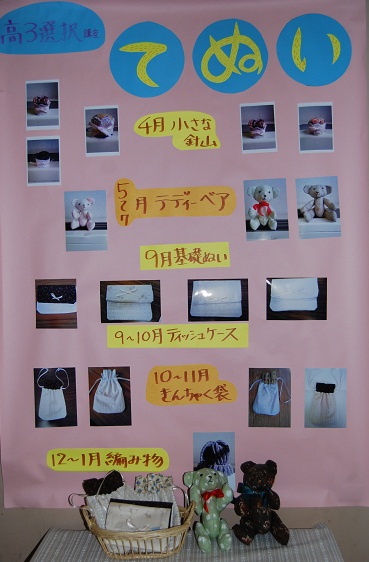 高3選択
てぬい
4月 小さな
針山
5て7月 テディーベア
9月基礎ぬい
9〜10月ティッシュケース
10〜11月
きんちゃく袋
12〜1月 編み物